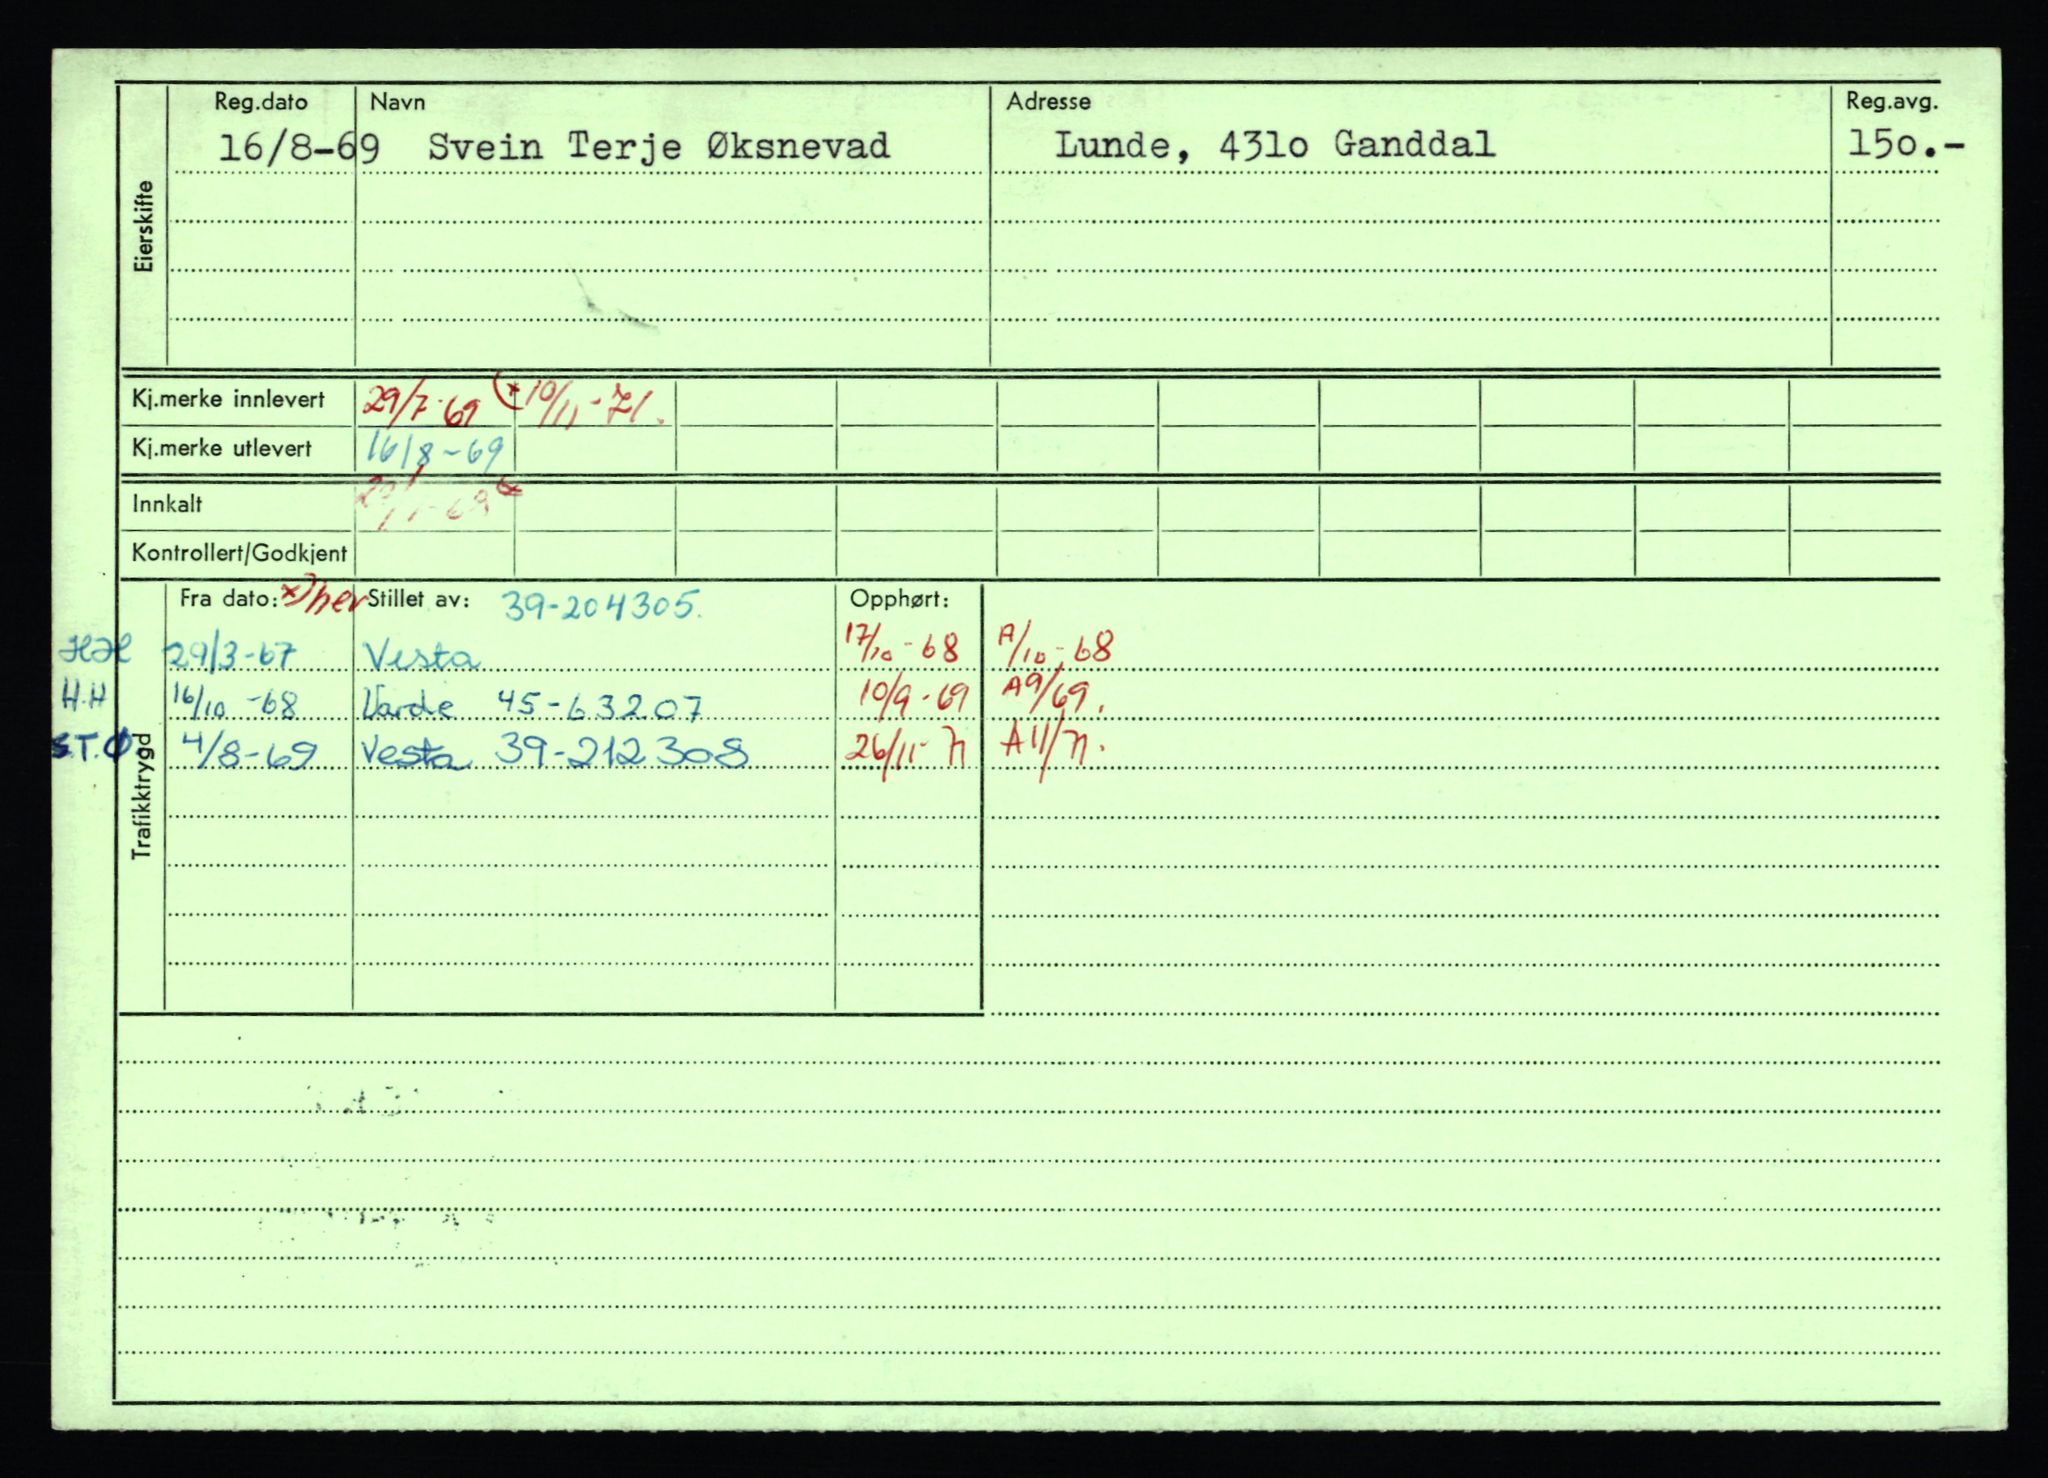 Reg.dato Navn Adresse Reg.avg.
16/8-69 Svein Terje Øksnevad Lunde, 431o Ganddal 15o.-
Eierskifte
Kj.merke innlevert 29/7-69 (* 10/11-71.
Kj.merke utlevert 16/8-69
Innkalt
Kontrollert/Godkjent
Fra dato: *) her Stillet av: 39-204305. Opphørt:
29/3-67 Vesta 17/10-68 A/10-68
H.H 16/10-68 Varde 45-63207 10/9-69 A9/69.
S.T.Ø 4/8-69 Vesta 39-212308 26/11-71 A11/71.
Trafikktrygd